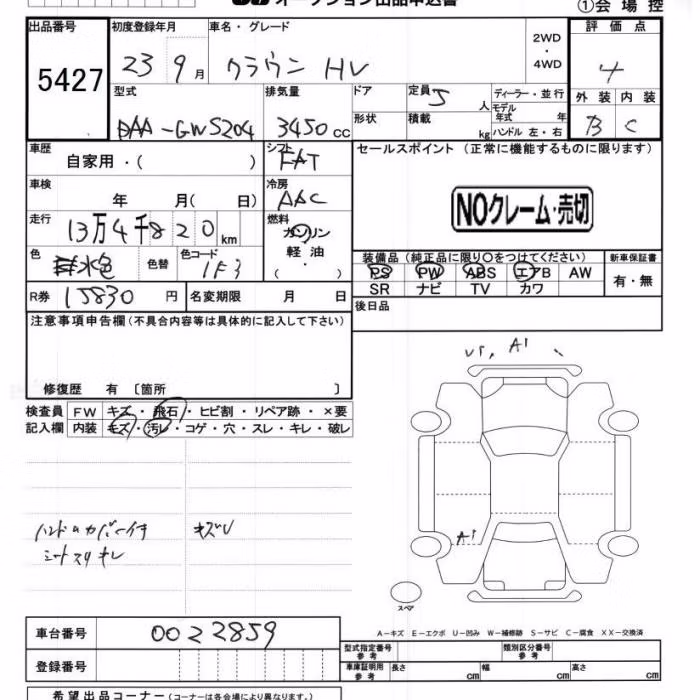 オークション出品申込書
①会場控
出品番号 初度登録年月 車名・グレード 評価点
5427 23 9月 クラウン HV 2WD ・ 4WD 4
型式 排気量 ドア 定員 5 人 ディーラー・並行 外装 内装
DAA-GWS204 3450cc 形状 積載 kg モデル年式 年 ハンドル 左・右 B C
車歴 自家用・( ) シフト FAT セールスポイント (正常に機能するものに限ります)
車検 年 月( 日) 冷房 AAC
NOクレーム・売切
走行 13万4千820km 燃料 ガソリン 軽油・ ( )
色 水色 色替 色コード 1F3
装備品 (純正品に限り○をつけてください) 新車保証書
PS PW ABS エアB AW 有・無
SR ナビ TV カワ
R券 15830円 名変期限 月 日
後日品
注意事項申告欄 (不具合内容等は具体的に記入して下さい)
修復歴 有 [箇所 ]
検査員 FW キズ・飛石・ヒビ割・リペア跡・×要
記入欄 内装 キズ・汚レ・コゲ・穴・スレ・キレ・破レ
A1
A1
キズU
シートスリキレ
スペア
A-キズ E-エクボ U-凹み W-補修跡 S-サビ C-腐食 XX-交換済
車台番号 0022859
型式指定番号 参考 類別区分番号 参考
登録番号
車庫証明用 参考 長さ cm 幅 cm 高さ cm
希望出品コーナー (コーナーは各会場により異なります。)